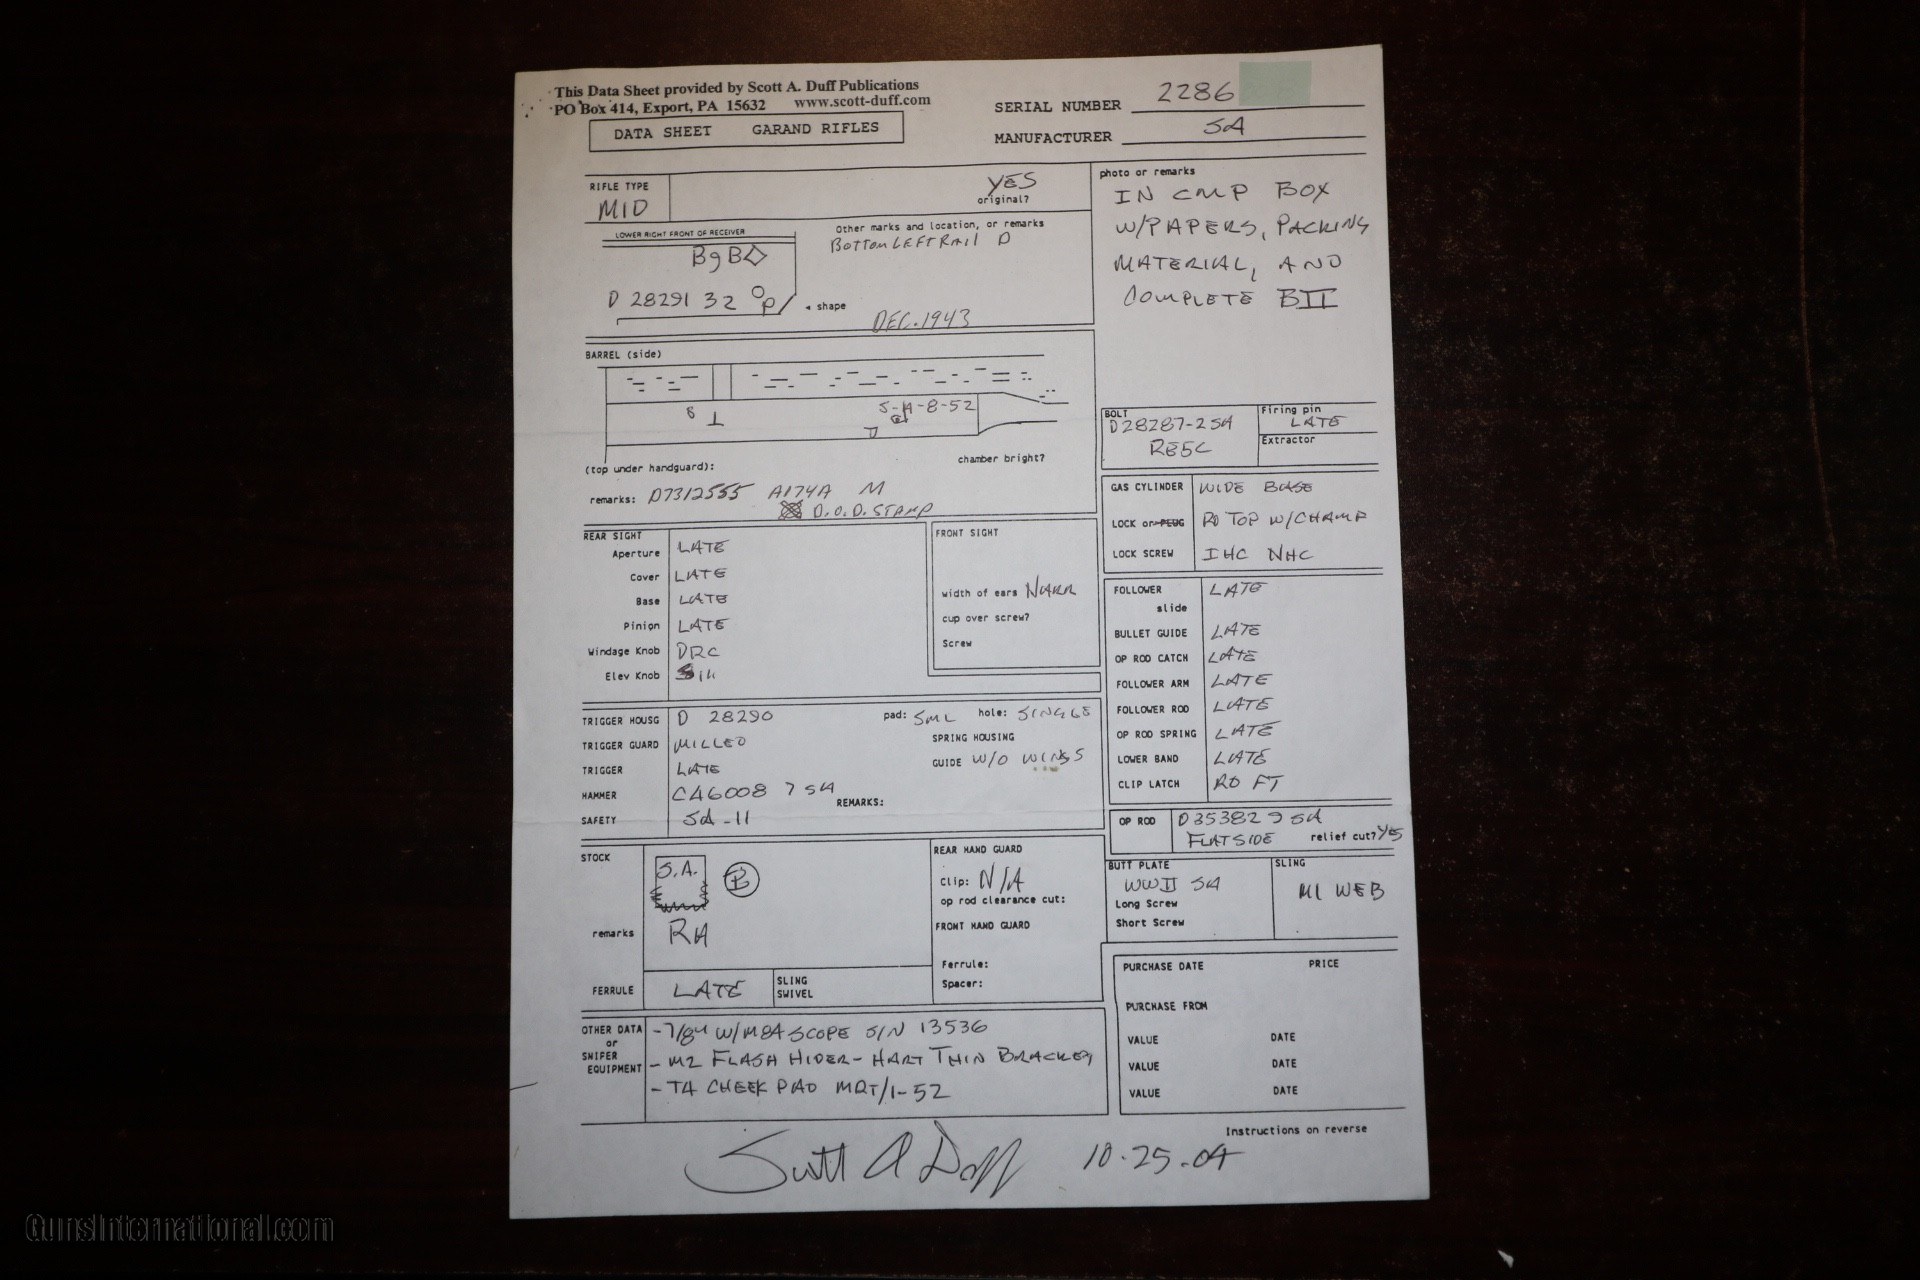 This Data Sheet provided by Scott A. Duff Publications
PO Box 414, Export, PA 15632 www.scott-duff.com
DATA SHEET GARAND RIFLES
SERIAL NUMBER 2286
MANUFACTURER SA
RIFLE TYPE
M1D
YES
original?
LOWER RIGHT FRONT OF RECEIVER
B9B◇
D 28291 32
◂ shape
Other marks and location, or remarks
BOTTOM LEFT RAIL D
DEC. 1943
photo or remarks
IN CMP BOX
W/PAPERS, PACKING
MATERIAL, AND
COMPLETE BII
BARREL (side)
S-A-8-52
(top under handguard):
chamber bright?
remarks: D7312555 A174A M
D.O.D. STAMP
BOLT
D28287-2SA
RE5C
Firing pin
LATE
Extractor
GAS CYLINDER WIDE BASE
LOCK or PLUG RD TOP W/CHAMP
LOCK SCREW IHC NHC
REAR SIGHT
Aperture LATE
Cover LATE
Base LATE
Pinion LATE
Windage Knob DRC
Elev Knob
FRONT SIGHT
width of ears NARR
cup over screw?
Screw
FOLLOWER LATE
slide
BULLET GUIDE LATE
OP ROD CATCH LATE
FOLLOWER ARM LATE
FOLLOWER ROD LATE
OP ROD SPRING LATE
LOWER BAND LATE
CLIP LATCH RD FT
TRIGGER HOUSG D 28290 pad: SML hole: SINGLE
TRIGGER GUARD MILLED
TRIGGER LATE
HAMMER C46008 7 SA
SAFETY SA-11
SPRING HOUSING
GUIDE W/O WINGS
REMARKS:
OP ROD D35382 9 SA
FLAT SIDE relief cut? YES
STOCK
S.A.
P
remarks RA
FERRULE LATE
SLING
SWIVEL
REAR HAND GUARD
Clip: N/A
op rod clearance cut:
FRONT HAND GUARD
Ferrule:
Spacer:
BUTT PLATE
WWII SA
Long Screw
Short Screw
SLING
M1 WEB
OTHER DATA
or
SNIPER
EQUIPMENT
- 7/84 W/M84 SCOPE S/N 13536
- M2 FLASH HIDER - HART THIN BRACKET
- T4 CHEEK PAD MRT/1-52
PURCHASE DATE PRICE
PURCHASE FROM
VALUE DATE
VALUE DATE
VALUE DATE
Instructions on reverse
Scott A Duff 10-25-04
GunsInternational.com